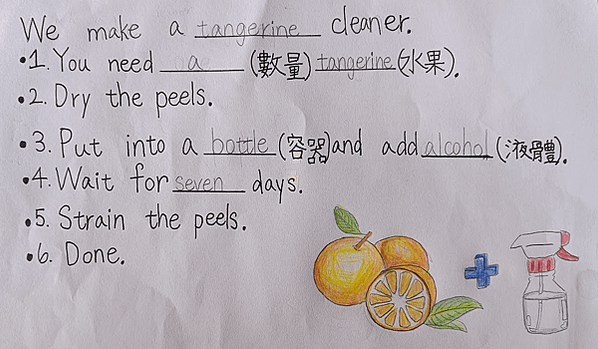 We make a tangerine cleaner.
•1. You need a (數量) tangerine (水果).
•2. Dry the peels.
•3. Put into a bottle (容器) and add alcohol (液體).
•4. Wait for seven days.
•5. Strain the peels.
•6. Done.